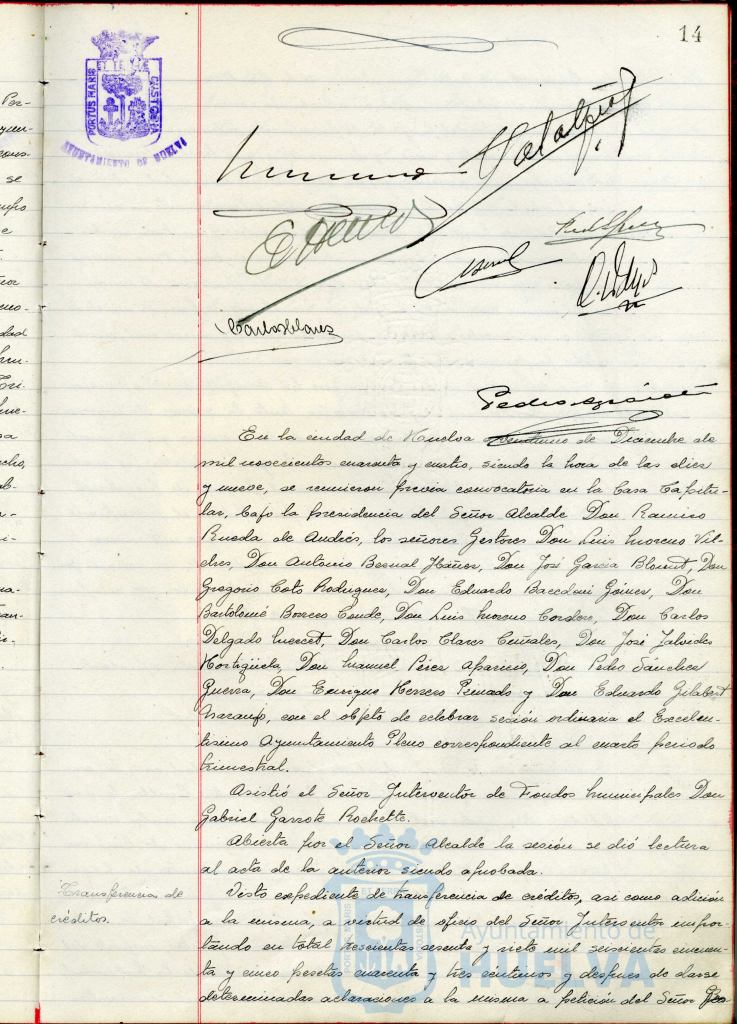 14
PORTUS MARIS
ET TERRAE
CUSTODIA
AYUNTAMIENTO DE HUELVA
Carlos Clares
En la ciudad de Huelva a veintiuno de Diciembre de
mil novecientos cuarenta y cuatro, siendo la hora de las diez
y nueve, se reunieron previa convocatoria en la Casa Capitu-
lar, bajo la presidencia del Señor Alcalde Don Ramiro
Rueda de Andrés, los señores Gestores Don Luis Moreno Vil-
ches, Don Antonio Bernal Ibáñez, Don José García Don
Gregorio Coto Rodriguez, Don Eduardo Gómez, Don
Bartolomé Borrero Conde, Don Luis Moreno Cordero, Don Carlos
Delgado Don Carlos Clares Don José Jalvides
Hortigüela, Don Manuel Pérez Aparicio, Don Pedro Sánchez
Guerra, Don Enrique Herrero Peinado y Don Eduardo Gilabert
Naranjo, con el objeto de celebrar sesión ordinaria el Excelen-
tísimo Ayuntamiento Pleno correspondiente al cuarto periodo
trimestral.
Asistió el Señor Interventor de Fondos Municipales Don
Gabriel Garrote Rochette.
Abierta por el Señor Alcalde la sesión se dió lectura
al acta de la anterior siendo aprobada.
Transferencia de
créditos.
Visto expediente de transferencia de créditos, asi como adición
a la misma, a virtud de oficio del Señor Interventor impor-
tando en total trescientas sesenta y siete mil seiscientas cincuen-
ta y cinco pesetas cuarenta y tres centimos y despues de darse
determinadas aclaraciones a la misma a petición del Señor
Ayuntamiento de
HUELVA